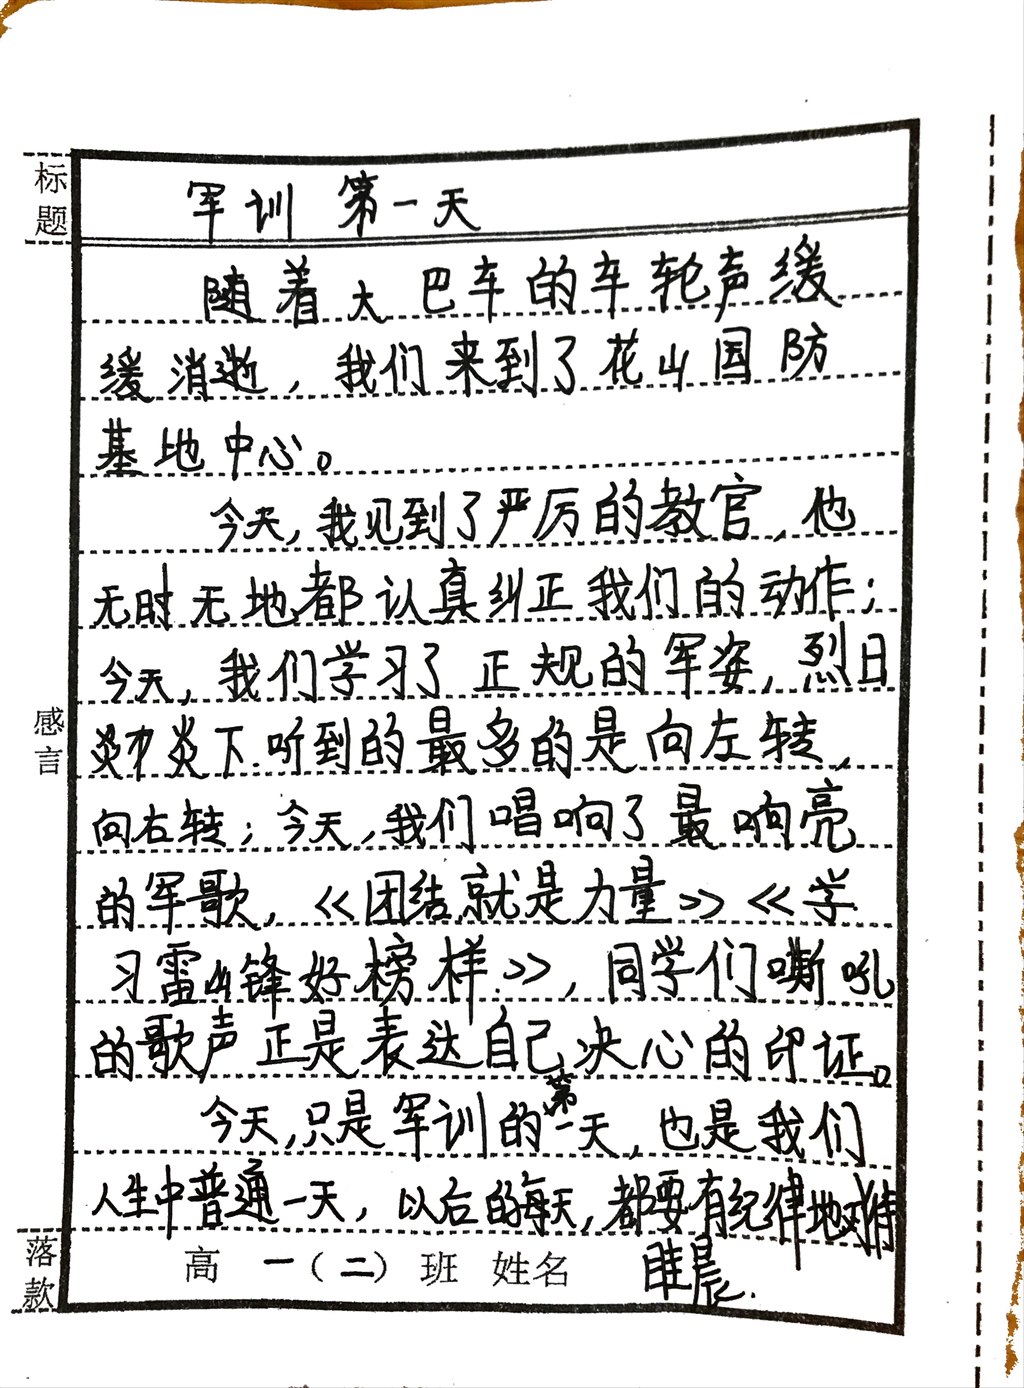 标题
军训 第一天
随着大巴车的车轮声缓
缓消逝，我们来到了花山国防
基地中心。
今天，我见到了严厉的教官，他
无时无地都认真纠正我们的动作；
今天，我们学习了正规的军姿，烈日
炎炎下听到的最多的是向左转，
向右转；今天，我们唱响了最响亮
的军歌，《团结就是力量》《学
习雷锋好榜样》，同学们嘶吼
的歌声正是表达自己决心的印证。
今天，只是军训的第一天，也是我们
人生中普通一天，以后的每天，都要有纪律地对待
感言
落款
高一（二）班 姓名 眭晨.